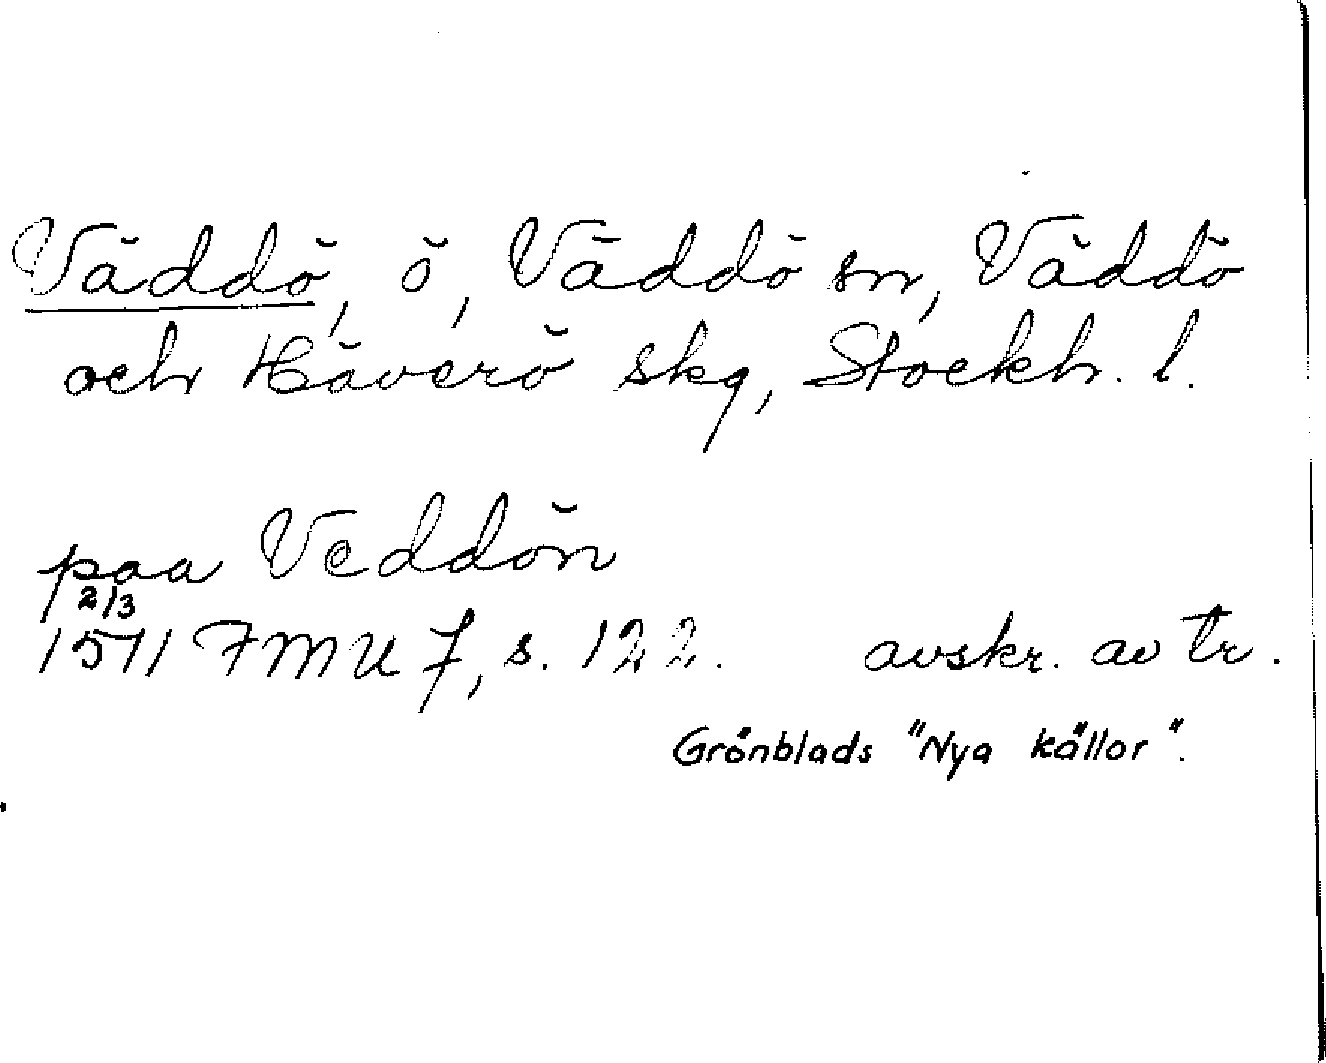 Väddö, ö, Väddö sn, Väddö
och Häverö skg, Stockh. l.
paa Veddön
2/3
1571 FMU f, s. 122. avskr. av tr.
Grönblads "Nya källor".